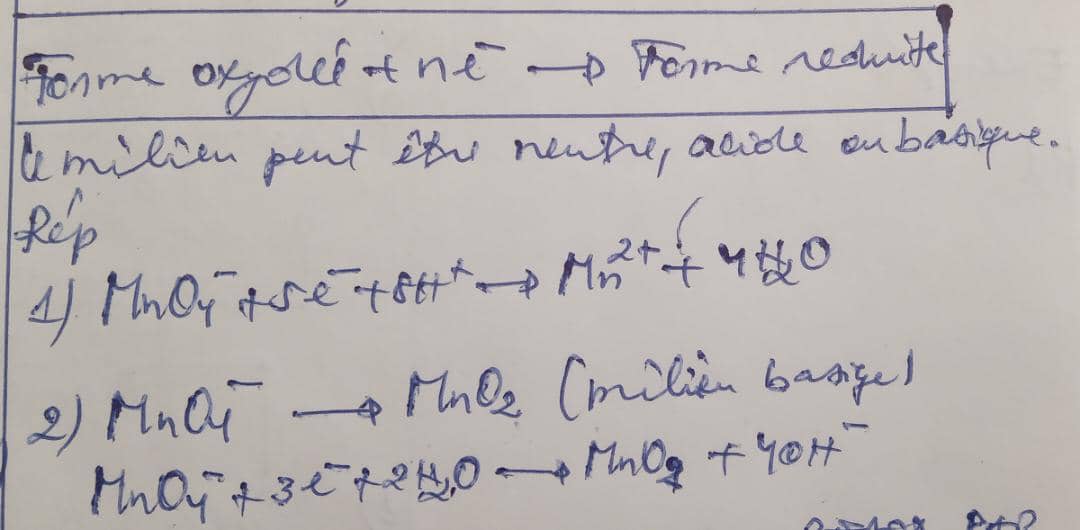 Forme oxydée + né → Forme reduite
Le milieu peut être neutre, acide ou basique.
Rép
1) MnO₄⁻ + 5e⁻ + 8H⁺ → Mn²⁺ + 4H₂O
2) MnO₄⁻ → MnO₂ (milieu basique)
MnO₄⁻ + 3e⁻ + 2H₂O → MnO₂ + 4OH⁻